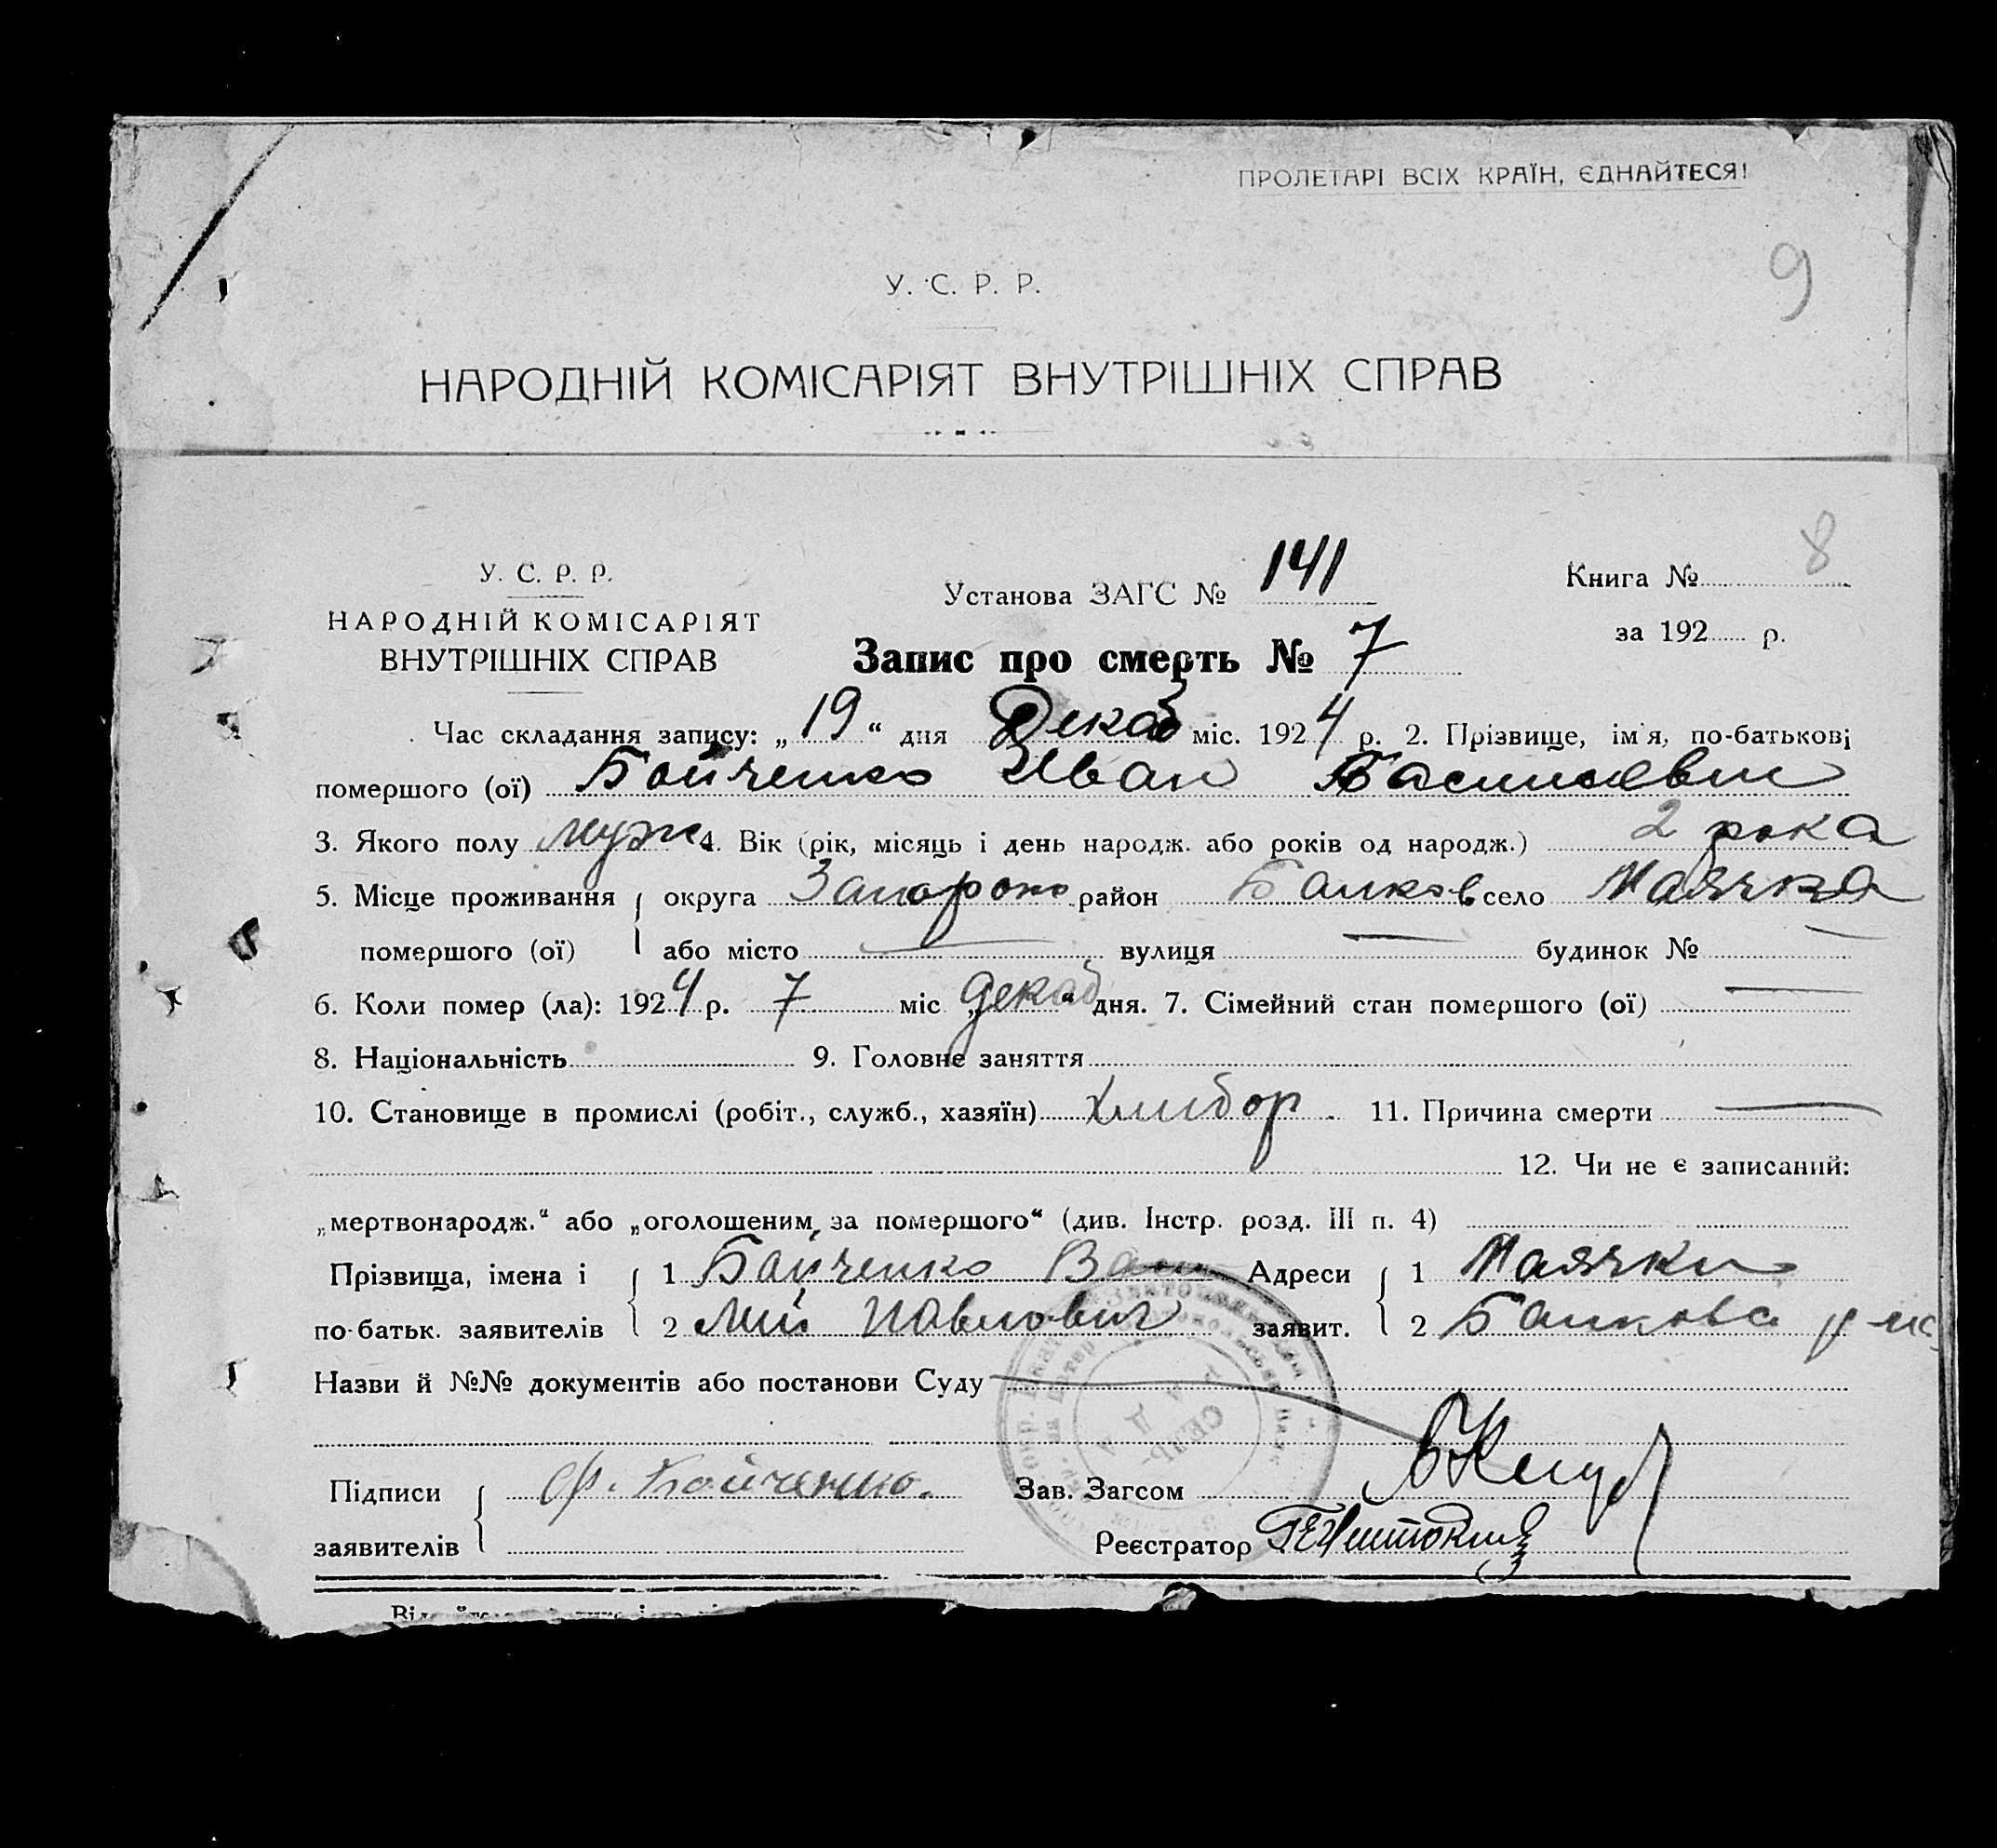 ПРОЛЕТАРІ ВСІХ КРАЇН, ЄДНАЙТЕСЯ!
9
У. С. Р. Р.
НАРОДНІЙ КОМІСАРІЯТ ВНУТРІШНІХ СПРАВ
8
У. С. Р. Р.
НАРОДНІЙ КОМІСАРІЯТ
ВНУТРІШНІХ СПРАВ
Установа ЗАГС № 141
Книга №
за 192 р.
Запис про смерть № 7
Час складання запису: „19“ дня Декаб міс. 1924 р. 2. Прізвище, ім'я, по-батькові
помершого (ої) Бойченко Иван Василиевич
3. Якого полу муж 4. Вік (рік, місяць і день народж. або років од народж.) 2 рока
5. Місце проживання округа Запорож район Балков село Маячка
помершого (ої) або місто — вулиця — будинок № —
6. Коли помер (ла): 1924 р. 7 міс „декаб“ дня. 7. Сімейний стан помершого (ої) —
8. Національність 9. Головне заняття
10. Становище в промислі (робіт., служб., хазяїн) хлибор. 11. Причина смерти —
12. Чи не є записаний:
„мертвонародж.“ або „оголошеним за помершого“ (див. Інстр. розд. III п. 4)
Прізвища, імена і 1 Бойченко Васи Адреси 1 Маячки
по-батьк. заявителів 2 лий Павлович заявит. 2 Балковс
Назви й №№ документів або постанови Суду —
Підписи Ф. Бойченко. Зав. Загсом
заявителів Реєстратор